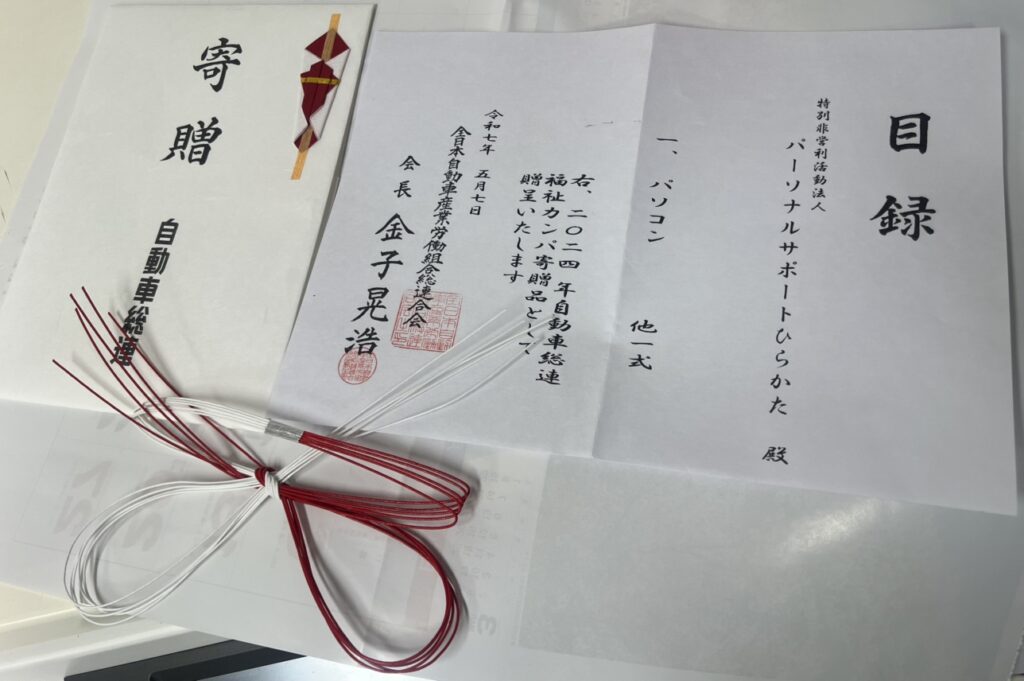 目録
特別非営利活動法人
パーソナルサポートひらかた 殿
一、パソコン 他一式
右、二〇二四年自動車総連
福祉カンパ寄贈品として
贈呈いたします
令和七年 五月七日
全日本自動車産業労働組合総連合会
会長 金子晃浩
寄贈
自動車総連